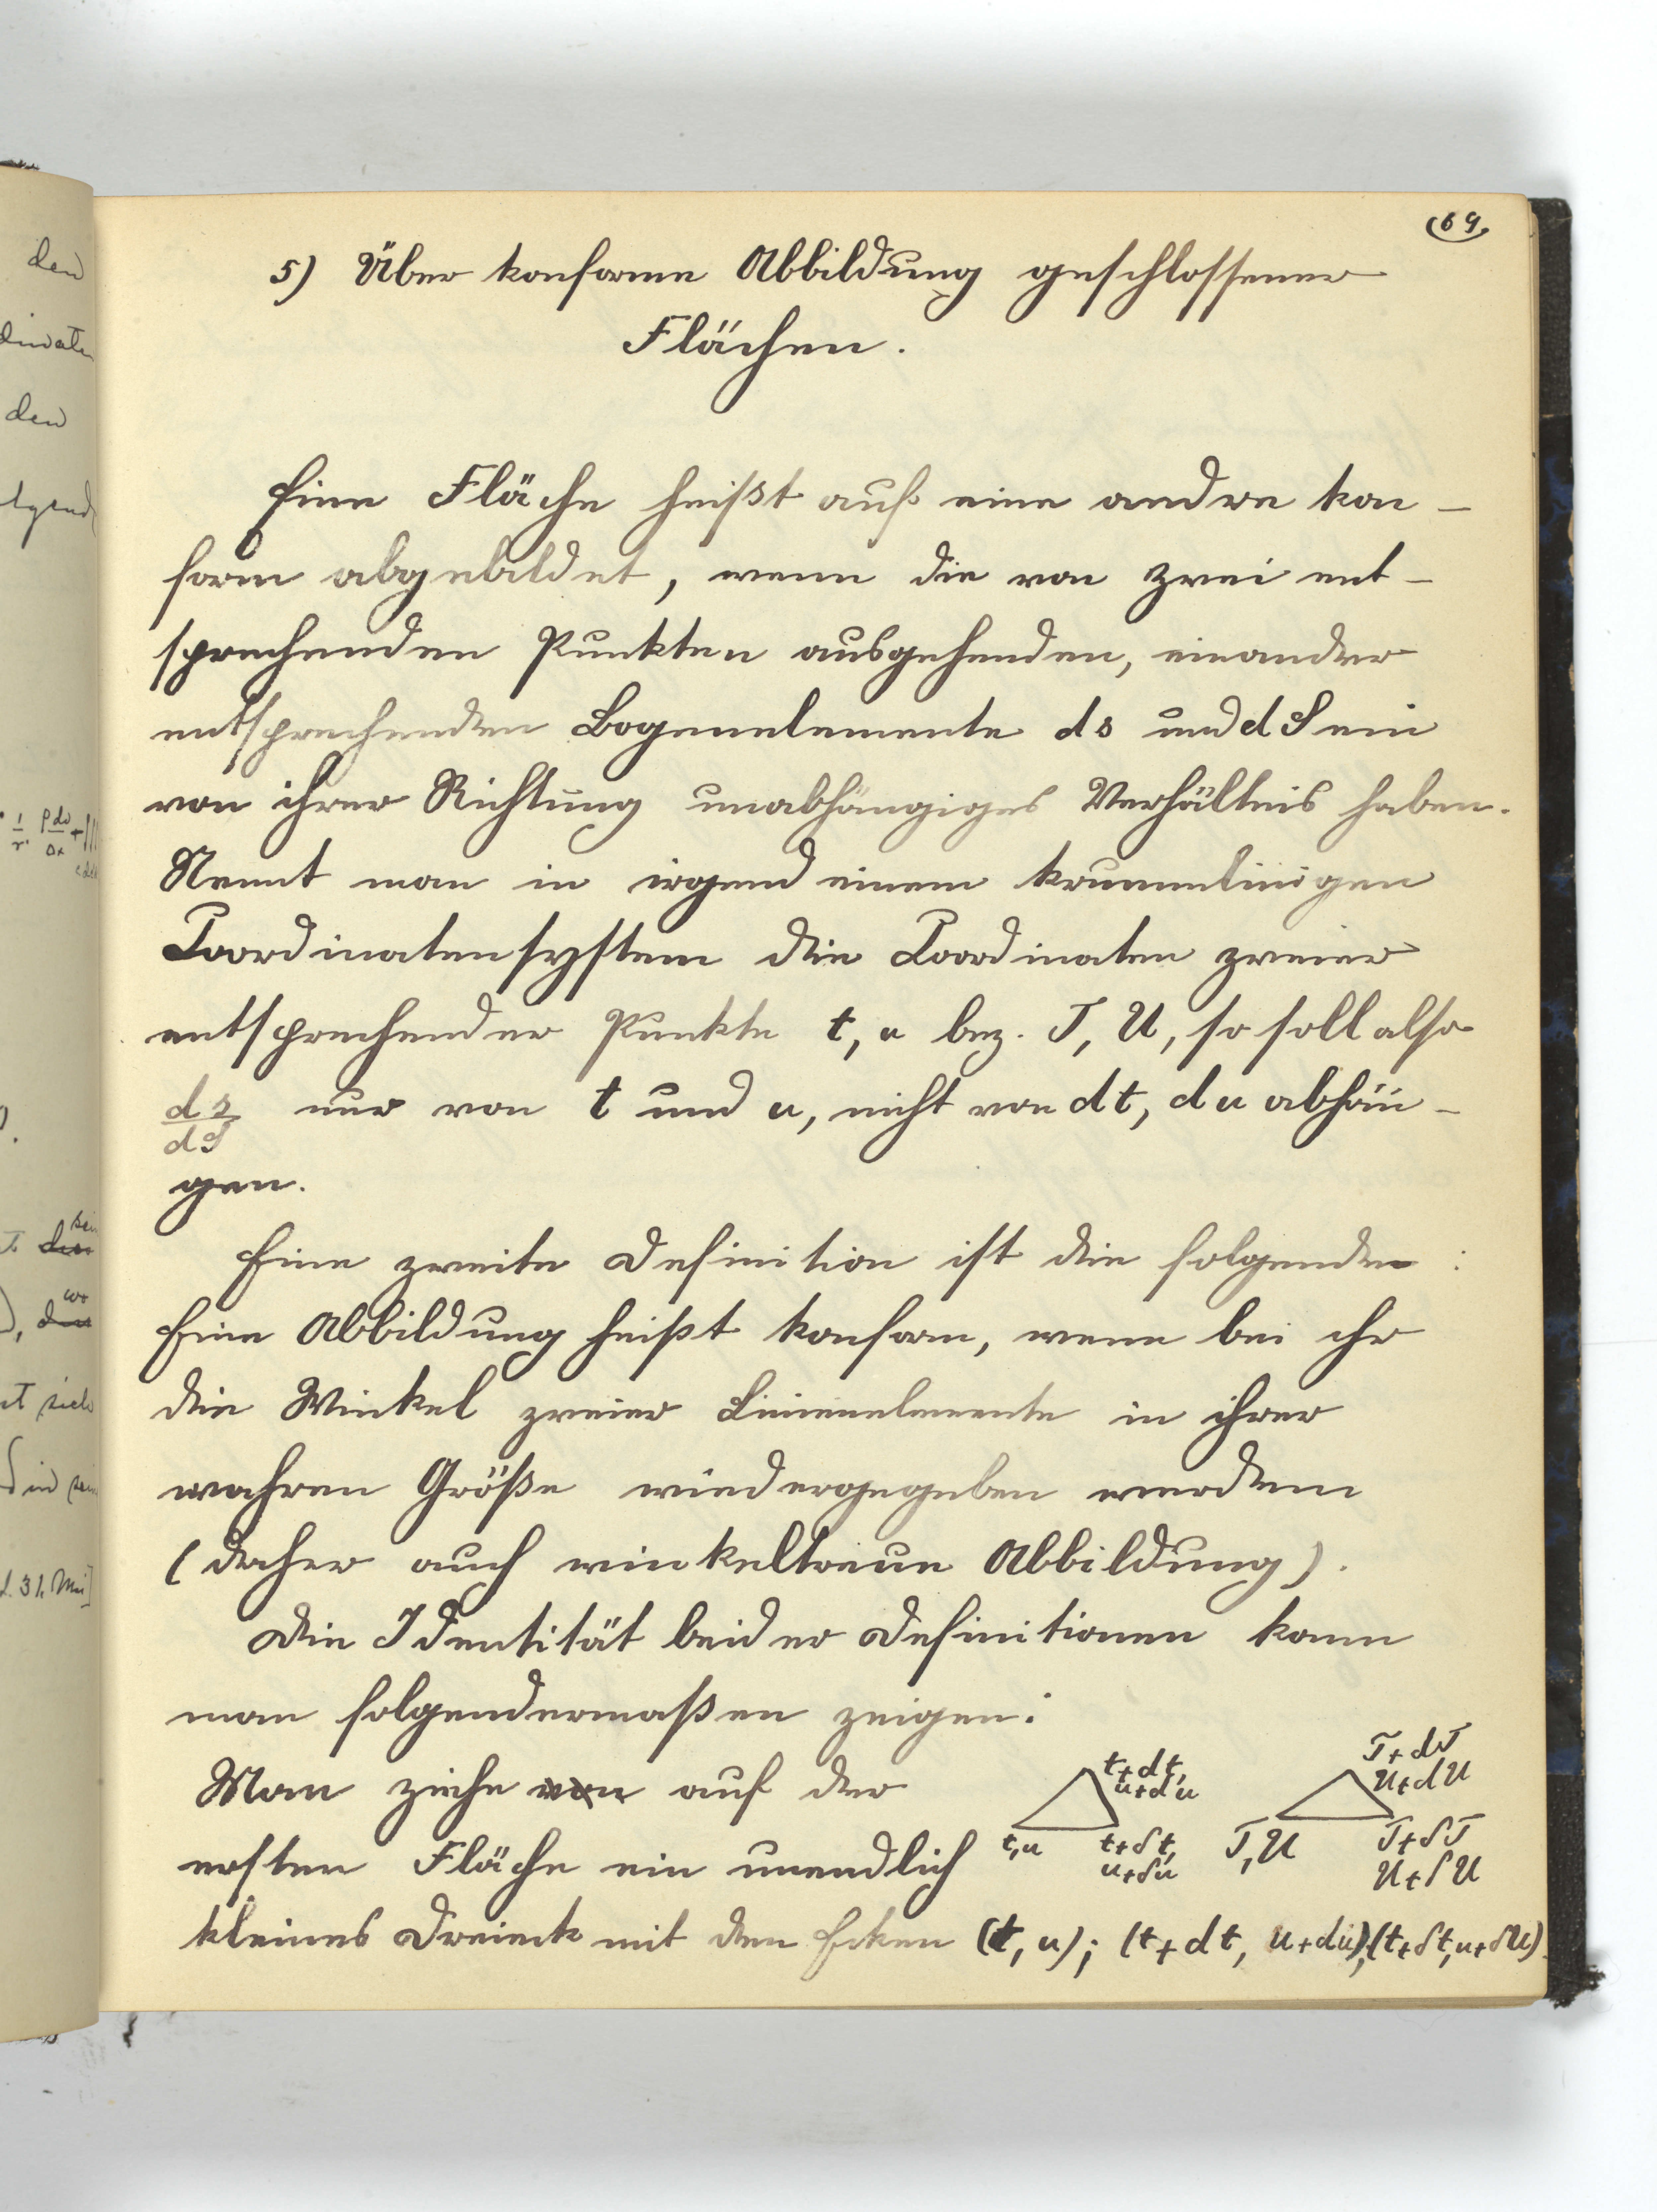 69
5) Über konforme Abbildung geschlossener
Flächen.
Eine Fläche heißt auf eine andre kon-
form abgebildet, wenn die von zwei ent-
sprechenden Punkten ausgehenden, einander
entsprechenden Bogenelemente ds und dS ein
von ihrer Richtung unabhängiges Verhältnis haben.
Nennt man in irgend einem krummlinigen
Coordinatensystem die Coordinaten zweier
entsprechender Punkte t, u bez. T, U, so soll also
ds/dS nur von t und u, nicht von dt, du abhän-
gen.
Eine zweite Definition ist die folgende:
Eine Abbildung heißt konform, wenn bei ihr
die Winkel zweier Linienelemente in ihrer
wahren Größe wiedergegeben werden
(daher auch winkeltreue Abbildung).
Die Identität beider Definitionen kann
man folgendermaßen zeigen:
Man ziehe von auf der
ersten Fläche ein unendlich
kleines Dreieck mit den Ecken (t, u); (t+dt, u+du); (t+δt, u+δu)
t+dt,
u+du
t,u
t+δt,
u+δu
T+dT
U+dU
T,U
T+δT
U+δU
den
den
d. 31. Mai]